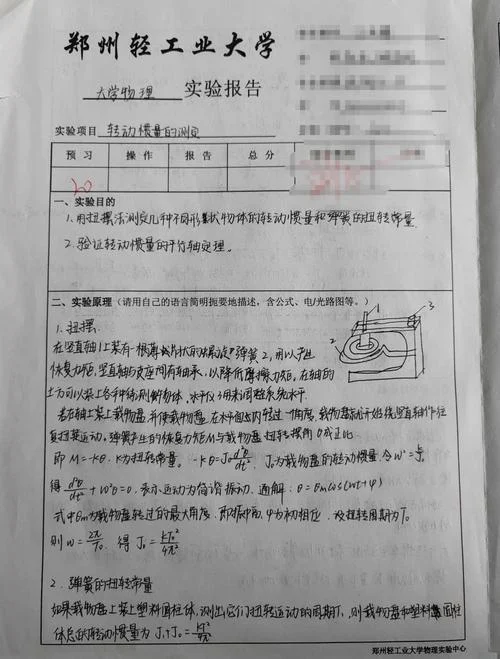 郑州轻工业大学
大学物理 实验报告
实验项目 转动惯量的测定
预习 操作 报告 总分
20
一、实验目的
1. 用扭摆法测定几种不同形状物体的转动惯量和弹簧的扭转常量
2. 验证转动惯量的平行轴定理。
二、实验原理（请用自己的语言简明扼要地描述，含公式、电/光路图等。）
1 3
2
1. 扭摆.
在竖直轴1上装有一根薄片状的螺旋弹簧2,用以产生
恢复力矩,竖直轴与支座间有轴承,以降低摩擦力矩,在轴的
上方可以装上各种待测刚体物体,水平仪3用来调整系统水平.
若在轴上装上载物盘,并使载物盘在水平面内转过一角度,载物盘就开始绕竖直轴作往
复扭转运动.弹簧产生的恢复力矩M与载物盘扭转摆角θ成正比
即 M=-kθ. k为扭转常量. -kθ=J₀d²θ/dt². J₀为载物盘的转动惯量.令ω²=k/J₀
得 d²θ/dt²+ω²θ=0,表示运动为简谐振动,通解:θ=θm cos(ωt+φ)
式中θm为载物盘转过的最大角度,即振幅,φ为初相位. 设扭转周期为T₀
则 ω=2π/T₀ 得 J₀=kT₀²/4π²
2. 弹簧的扭转常量
如果载物盘上装上塑料圆柱体,测出它们扭转运动的周期T,则载物盘和塑料圆柱
体总的转动惯量为 J₁+J₀=kT²/4π²
郑州轻工业大学物理实验中心